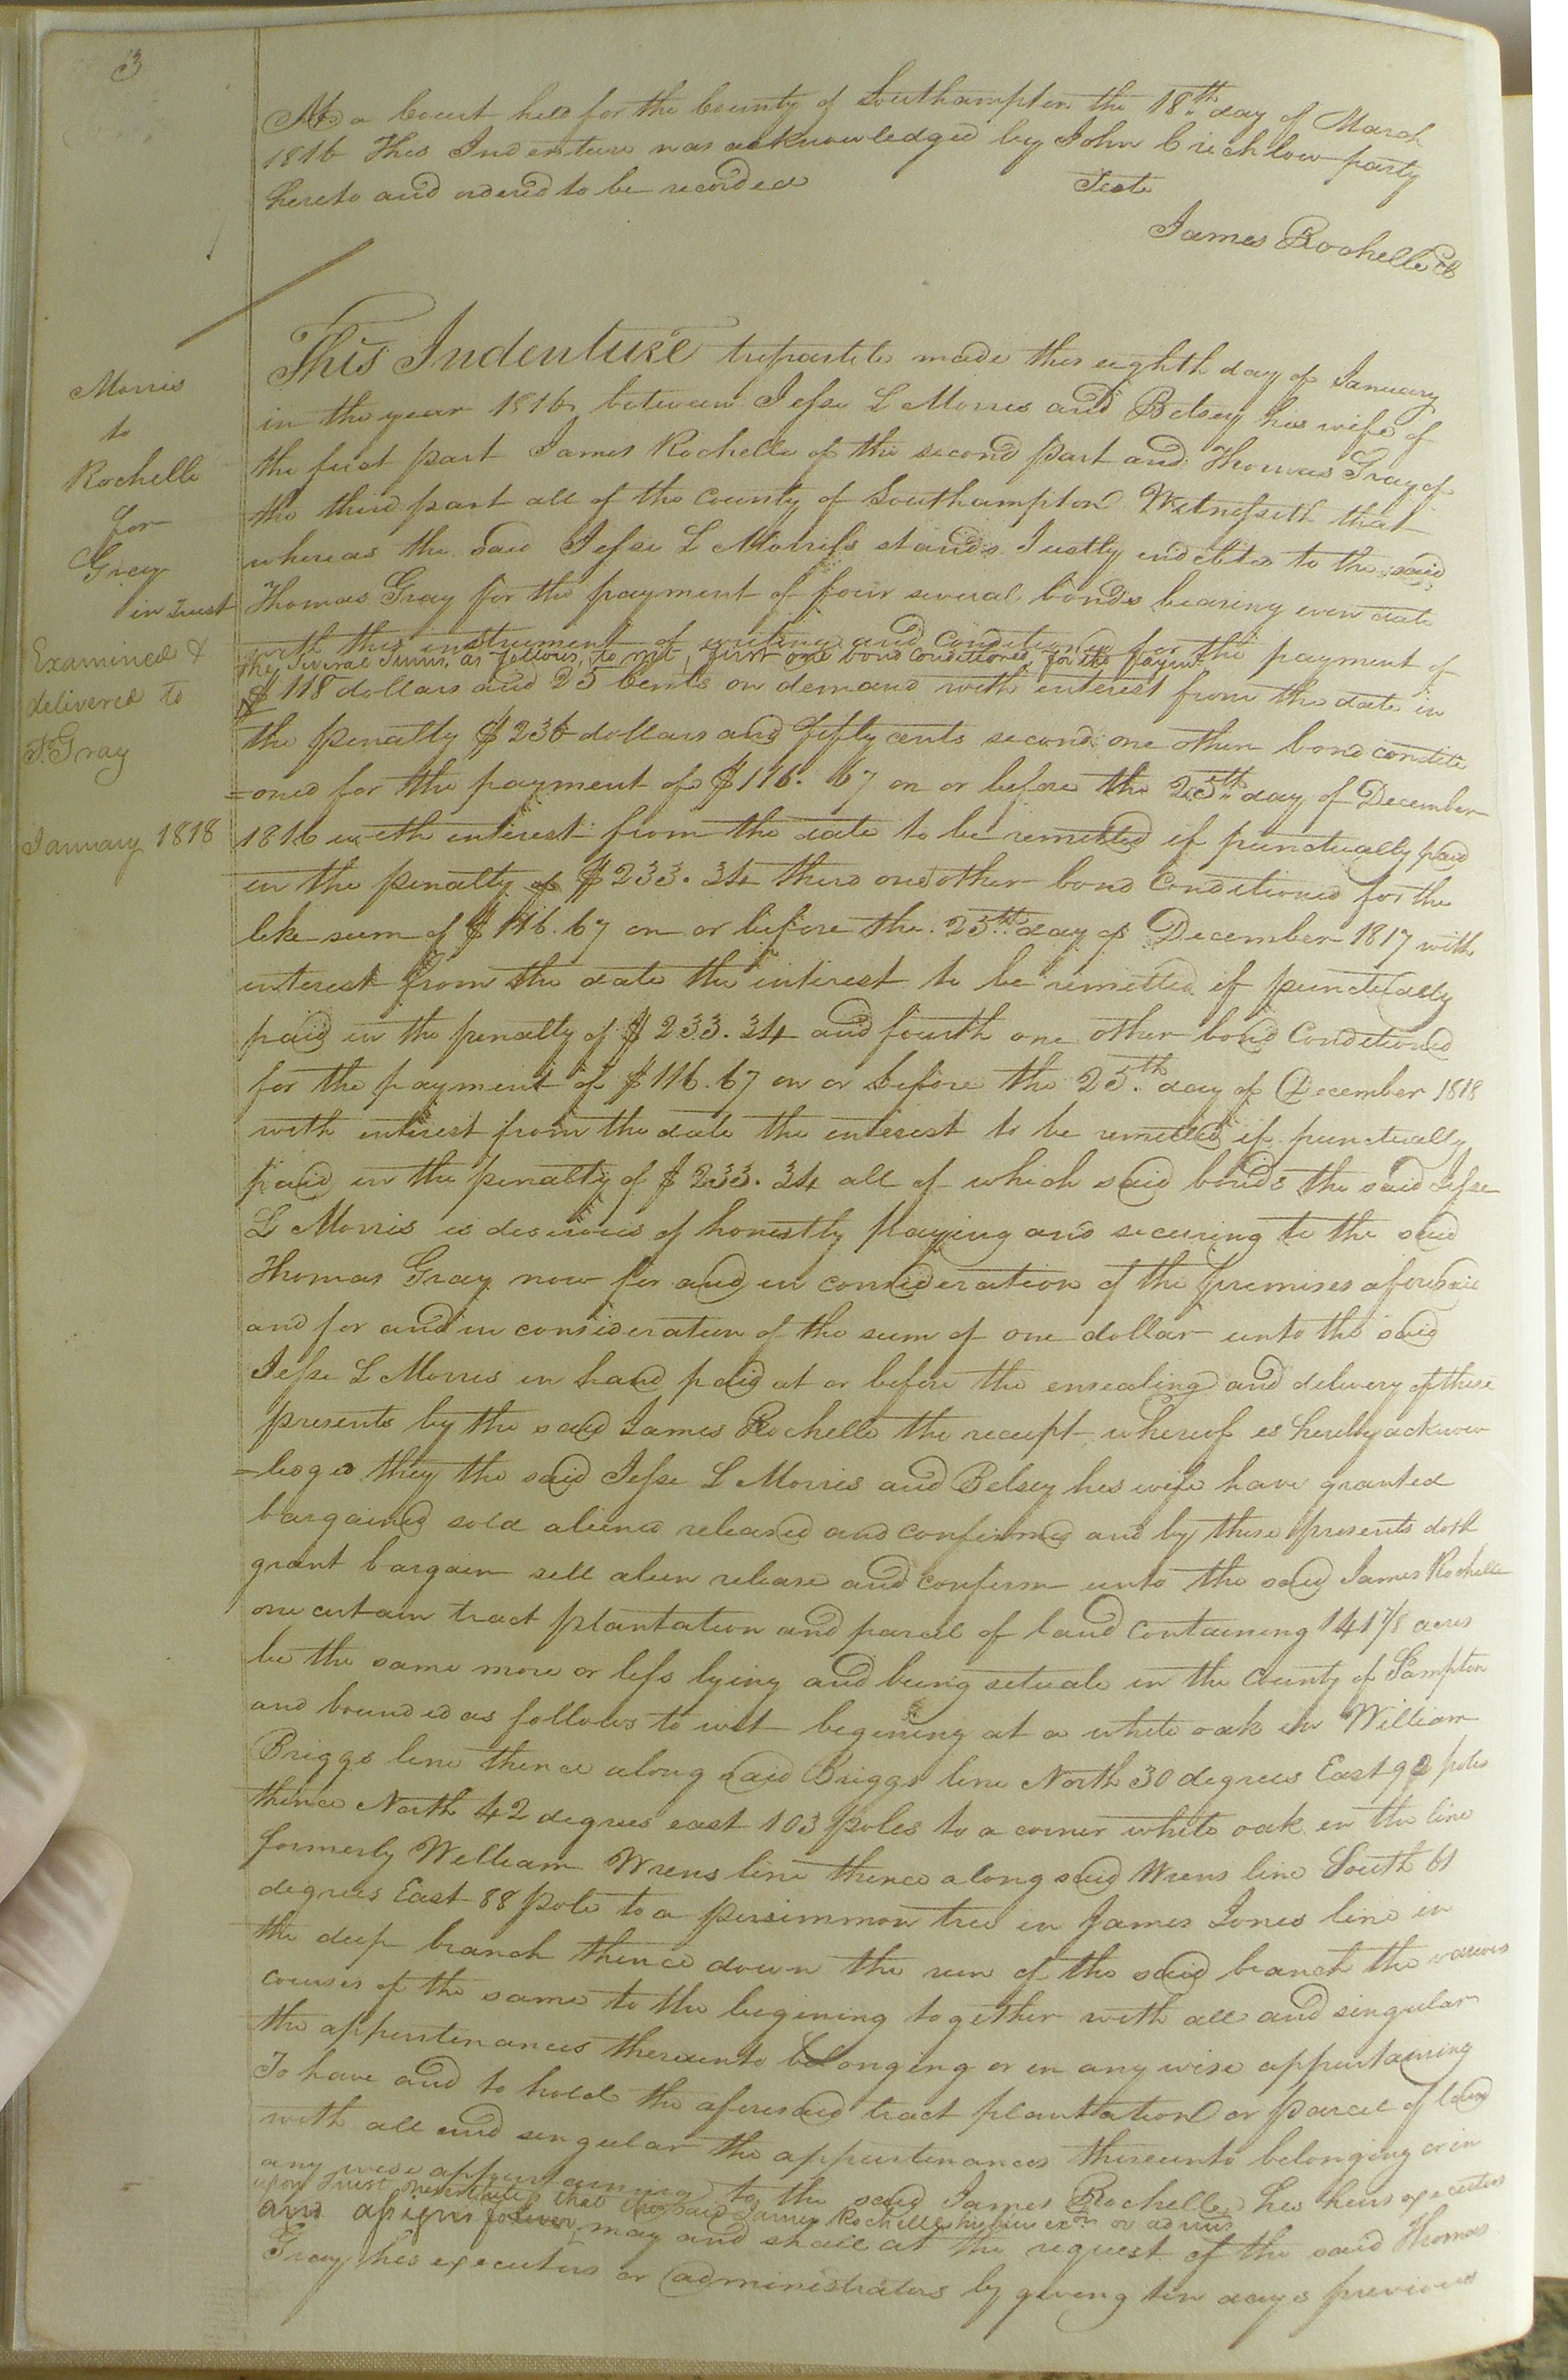 3
At a Court held for the County of Southampton the 18th day of March
1816 This Indenture was acknowledged by John Crichlow party
hereto and ordered to be recorded
Teste
James Rochelle
Morris
to
Rochelle
for
Gray
in Trust
Examined &
delivered to
T. Gray
January 1818
This Indenture tripartite made this eighth day of January
in the year 1816 between Jesse L Morris and Betsey his wife of
the first part James Rochelle of the second part and Thomas Gray of
the third part all of the County of Southampton Witnesseth that
whereas the said Jesse L Morriss stands Justly indebted to the said
Thomas Gray for the payment of four several bonds bearing even date
with this instrument of writing and conditioned for the payment of
the several Sums, as follows, to wit, first one bond conditioned, for the paymt
$118 dollars and 25 Cents on demand with interest from the date in
the penalty $236 dollars and fifty cents second one other bond conditi
=oned for the payment of $116. 67 on or before the 25th day of December
1816 with interest from the date to be remitted if punctually paid
in the penalty of $233. 34 third one other bond Conditioned for the
like sum of $116. 67 on or before the 25th day of December 1817 with
interest from the date the interest to be remitted if punctually
paid in the penalty of $233. 34 and fourth one other bond Conditioned
for the payment of $116. 67 on or before the 25th day of December 1818
with interest from the date the interest to be remitted if punctually
paid in the penalty of $233. 34 all of which said bonds the said Jesse
L Morris is desirous of honestly paying and securing to the said
Thomas Gray now for and in consideration of the premises aforesaid
and for and in consideration of the sum of one dollar unto the said
Jesse L Morris in hand paid at or before the ensealing and delivery of these
presents by the said James Rochelle the receipt whereof is hereby acknow
=leoged they the said Jesse L Morris and Betsey his wife have granted
bargained sold aliened released and confirmed and by these presents doth
grant bargain sell alien release and confirm unto the said James Rochelle
one certain tract plantation and parcel of land containing 141 7/8 acres
be the same more or less lying and being situate in the County of Sampton
and bounded as follows to wit begining at a white oak in William
Briggs line thence along said Briggs line North 30 degrees East poles
thence North 42 degrees east 103 poles to a corner white oak in the line
formerly William Wrens line thence along said Wrens line South 61
degrees East 88 pole to a persimmon tree in James Jones line in
the deep branch thence down the run of the said branch the various
courses of the same to the begining together with all and singular
the appurtenances thereunto belonging or in any wise appurtaining
To have and to hold the aforesaid tract plantation or parcel of land
with all and singular the appurtenances thereunto belonging or in
any wise appurtaining to the said James Rochelle his heirs executors
upon Trust nevertheless that the said James Rochelle his heirs exors or admrs
and assigns forever may and shall at the request of the said Thomas
Gray his executors or administrators by giving ten days previous